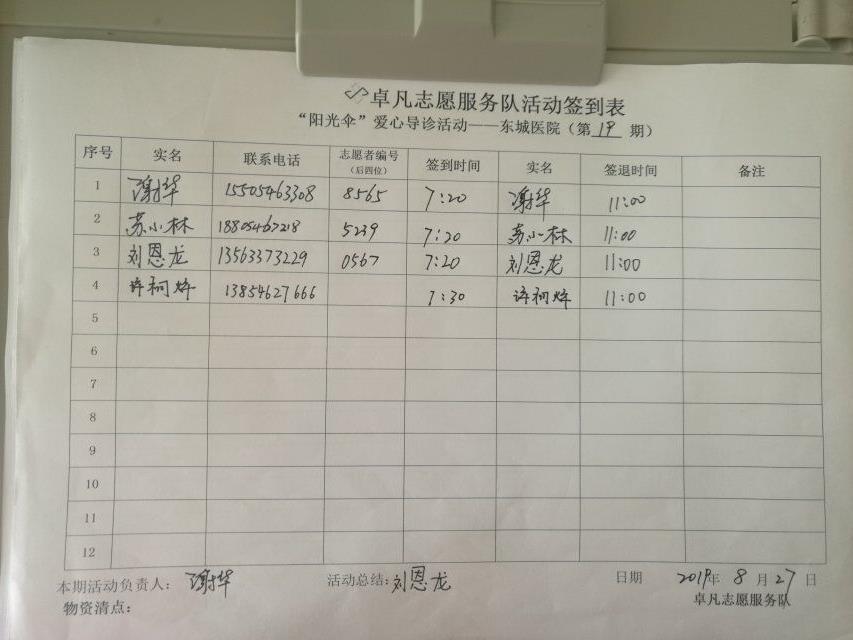 卓凡志愿服务队活动签到表
“阳光伞”爱心导诊活动——东城医院（第 19 期）
序号 实名 联系电话 志愿者编号（后四位） 签到时间 实名 签退时间 备注
1 谢华 15505463308 8565 7:20 谢华 11:00
2 苏小林 18805467218 5239 7:20 苏小林 11:00
3 刘恩龙 13563373229 0567 7:20 刘恩龙 11:00
4 许 13854627666 7:30 许 11:00
5
6
7
8
9
10
11
12
本期活动负责人： 谢华 活动总结: 刘恩龙 日期 2019年 8 月 27 日
物资清点： 卓凡志愿服务队